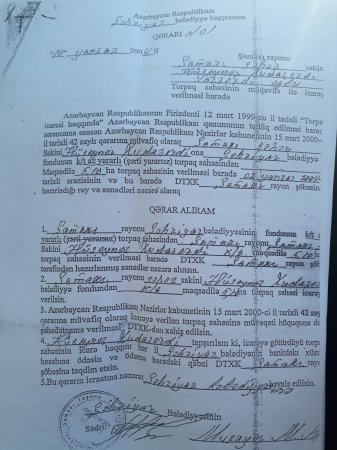 Azərbaycan Respublikası
Şəhriyar bələdiyyə başçısının
QƏRARI №01
yanvar 200
Şamaxı rayonu
Şamaxı şəhər sakin
Hüseynov Xudaverdi
Torpaq sahəsinin müqavilə ilə icarəy
verilməsi barədə
Azərbaycan Respublikasının Pirizdenti 12 mart 1999-cu il tarixli "Torpa
icarəsi haqqında" Azərbaycan Respublikası qanununun tətbiq edilməsi barəd
sərəncama əsasən Azərbaycan Respublikası Nazirlər kabinetinin 15 mart 2000-
il tarixli 42 saylı qərarına müvafiq olaraq Şamaxı şəhər
Sakini Hüseynov Xudaverdi ona Şəhriyar bələdiyyə
fondunun k/t yararlı (şərti yararsız) torpaq sahəsindən
Məqsədilə 5,10 ha torpaq sahəsinin verilməsi barədə yanvar 200
tarixli ərazisinin və bu barədə DTXK Şamaxı rayon şöbəsin
hazırladığı rəy və sənədləri nəzərə alaraq
QƏRAR ALIRAM
1. Şamaxı rayonu Şəhriyar bələdiyyəsinin fondunun k/t
yararlı (şərti yararsız) torpaq sahəsindən Şamaxı rayonu Şamaxı ş.
Sakini Hüseynov Xudaverdi məqsədilə 5,10
ha torpaq sahəsinin icarəyə verilməsi barədə DTXK Şamaxı rayon şöbə
tərəfindən hazırlanmış sənədlər nəzərə alınsın.
2. Şamaxı rayonu şəhər sakini Hüseynov Xudave
bələdiyyə fondundan məqsədilə ha torpaq sahəsi icarəy
verilsin.
3. Azərbaycan Respublikası Nazirlər kabinetinin 15 mart 2000-ci il tarixli 42
qərarına müvafiq olaraq icarəyə verilən torpaq sahəsinə müvəqqəti hüququna da
şəhadətnamə verilməsi DTXK-dan xahiş edilsin.
4. Hüseynov Xudaverdi tapşırılsın ki, icarəyə götürdüyü torp
sahəsinin icarə haqqını hər il Şəhriyar bələdiyyənin bankdakı xüsus
hesabına ödəsin və ödəmə barədəki qəbzi DTXK Şamaxı ray
şöbəsinə təqdim etsin.
5.Bu qərarın icrasına nəzarət Şəhriyar bələdiyyə həvalə edilsin.
Şəhriyar Bələdiyyəsinin
Sədri